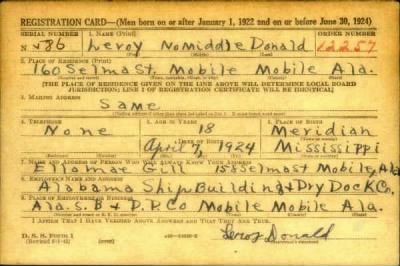 REGISTRATION CARD—(Men born on or after January 1, 1922 and on or before June 30, 1924)
SERIAL NUMBER 1. NAME (Print) ORDER NUMBER
N 586 Leroy No Middle Donald 12257
2. PLACE OF RESIDENCE (Print)
160 Selma St. Mobile Mobile Ala.
[THE PLACE OF RESIDENCE GIVEN ON THE LINE ABOVE WILL DETERMINE LOCAL BOARD
JURISDICTION; LINE 2 OF REGISTRATION CERTIFICATE WILL BE IDENTICAL]
3. MAILING ADDRESS
Same
4. TELEPHONE 5. AGE IN YEARS 6. PLACE OF BIRTH
None 18 Meridian
DATE OF BIRTH
April 7, 1924 Mississippi
7. NAME AND ADDRESS OF PERSON WHO WILL ALWAYS KNOW YOUR ADDRESS
Gill 158 Selma St Mobile, Ala
8. EMPLOYER'S NAME AND ADDRESS
Alabama Ship Building & Dry Dock Co.
9. PLACE OF EMPLOYMENT OR BUSINESS
Ala. S. B & D. D. Co Mobile Mobile Ala.
I AFFIRM THAT I HAVE VERIFIED ABOVE ANSWERS AND THAT THEY ARE TRUE.
D. S. S. Form 1
Leroy Donald